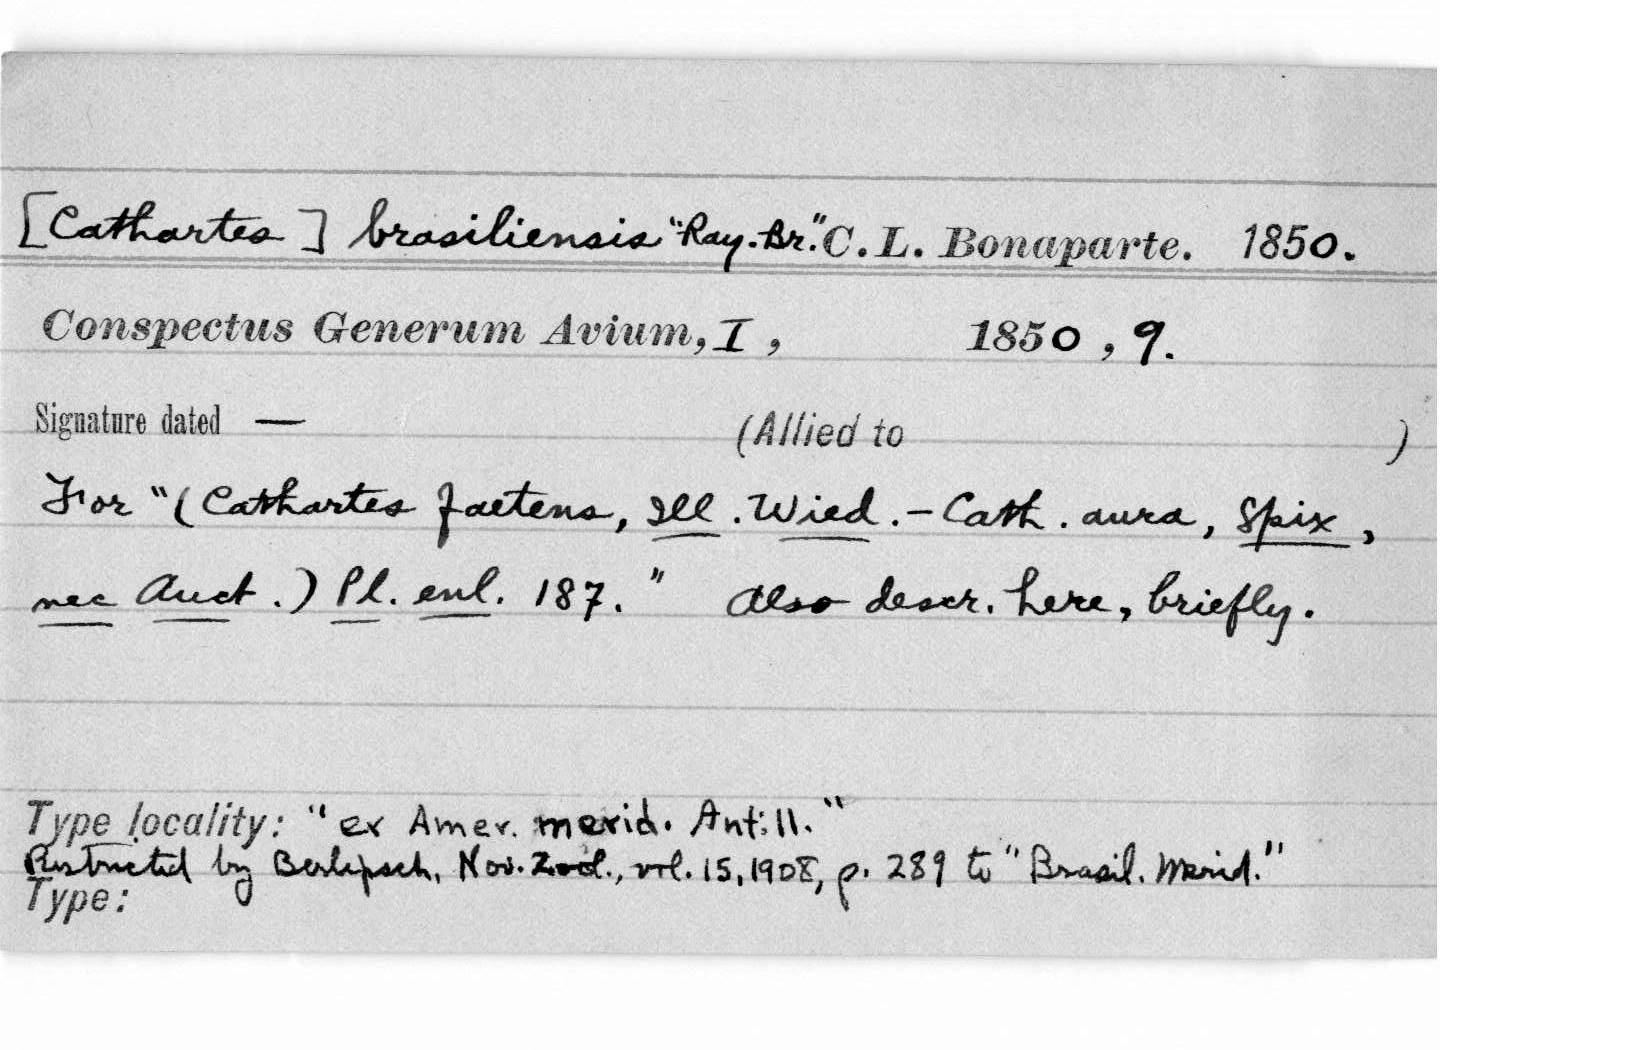 [Cathartes] brasiliensis "Ray. Br." C. L. Bonaparte. 1850.
Conspectus Generum Avium, I, 1850, 9.
Signature dated — (Allied to )
For "(Cathartes faetens, Ill. Wied. - Cath. aura, Spix,
nec Auct.) Pl. enl. 187." Also descr. here, briefly.
Type locality: "ex Amer. merid. Antill."
Restricted by Berlepsch, Nov. Zool., vol. 15, 1908, p. 289 to "Brasil. Merid."
Type: